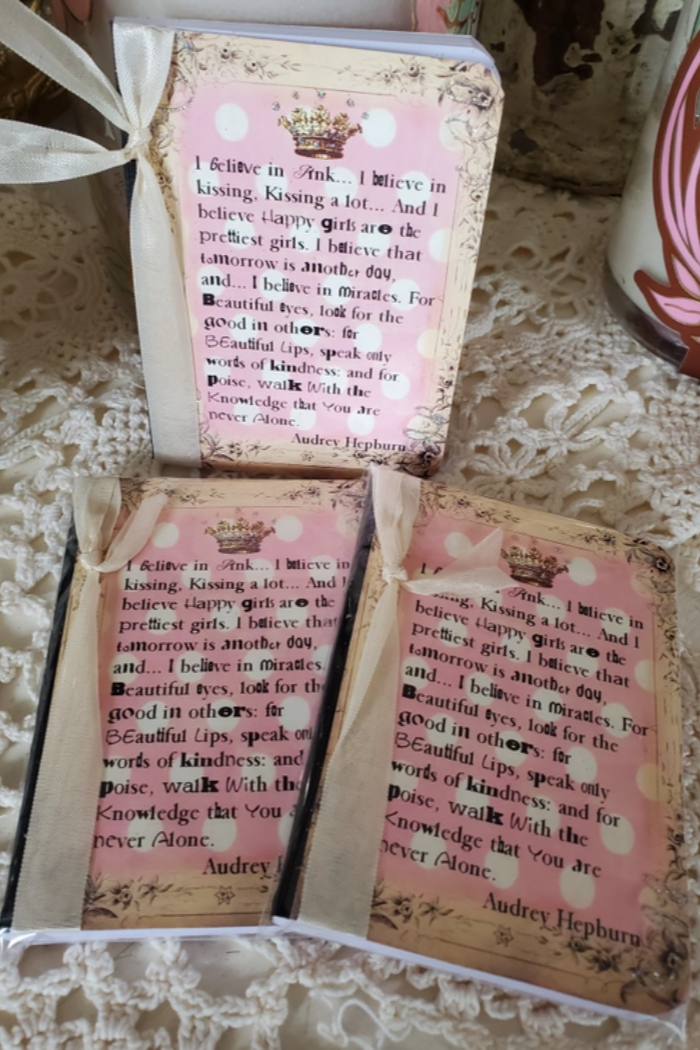 I Believe in Pink... I believe in
kissing, Kissing a lot... And I
believe Happy girls are the
prettiest girls. I believe that
tomorrow is another day,
and... I believe in Miracles. For
Beautiful eyes, look for the
good in others: for
BEautiful Lips, speak only
words of kindness: and for
poise, walk With the
Knowledge that You are
never Alone.
Audrey Hepburn
I Believe in Pink... I believe in
kissing, Kissing a lot... And I
believe Happy girls are the
prettiest girls. I believe that
tomorrow is another day,
and... I believe in Miracles.
Beautiful eyes, look for the
good in others: for
BEautiful Lips, speak
words of kindness: and
poise, walk With the
Knowledge that You
never Alone.
Audrey
I Pink... I believe in
Kissing a lot... And I
believe Happy girls are the
prettiest girls. I believe that
tomorrow is another day,
and... I believe in Miracles. For
Beautiful eyes, look for the
good in others: for
BEautiful Lips, speak only
words of kindness: and for
poise, walk With the
Knowledge that You are
never Alone.
Audrey Hepburn